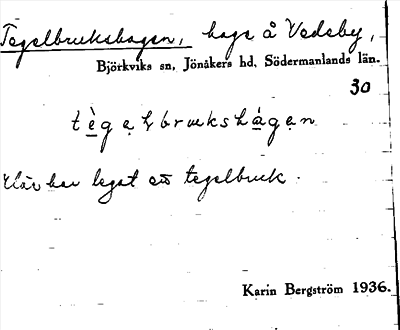 Tegelbrukshagen, hage å Vedeby,
Björkviks sn, Jönåkers hd, Södermanlands län.
30
tè̱gə̣ḷbrukshá̱gə̣n
Där har legat ett tegelbruk.
Karin Bergström 1936.